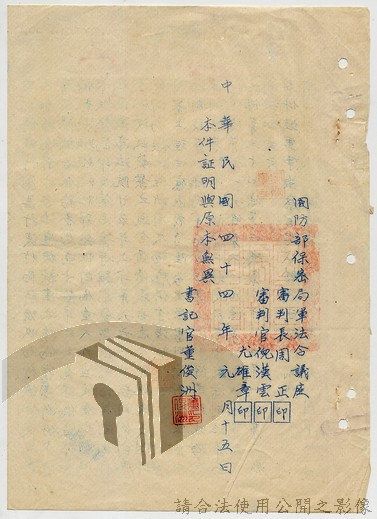 國防部保密局軍法合議庭
審判長周正印
審判官倪漢雲印
尤雄羣印
中華民國四十四年元月十五日
本件証明與原本無異
書記官董俊洲
請合法使用公開之影像